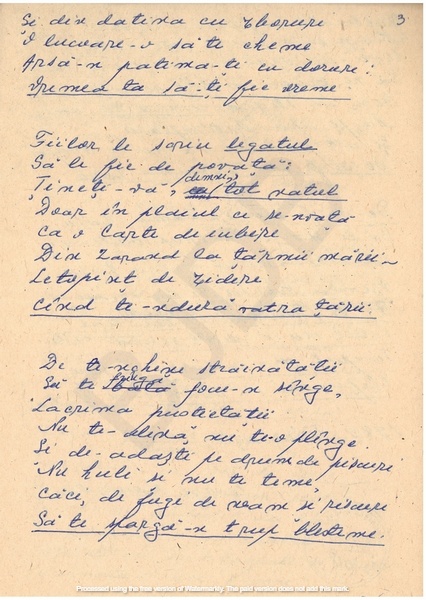 3
Și din datina cu
O lucoare-o să te cheme
Arsă-n patima-ți cu doruri:
Vremea ta să-ți fie vreme.
Fiilor le scriu legatul
Să le fie de povață:
Țineți-vă, demni, tot natul
Doar în plaiul ce
Ca o carte de iubire
Din Zarand la țărmii mării
Letopisț de zidire
Cînd te-ndură vatra țării.
De te-nghimp străinătății
Să te frîngă focu-n sînge,
Lacrima pustietății
Nu te-alină, nu te-o plînge
Și de-adaști pe drum de piscuri
Nu huli și nu te teme,
Căci, de fugi de neam și riscuri
Să te spargă-n trup blesteme.
Processed using the free version of Watermarkly. The paid version does not add this mark.